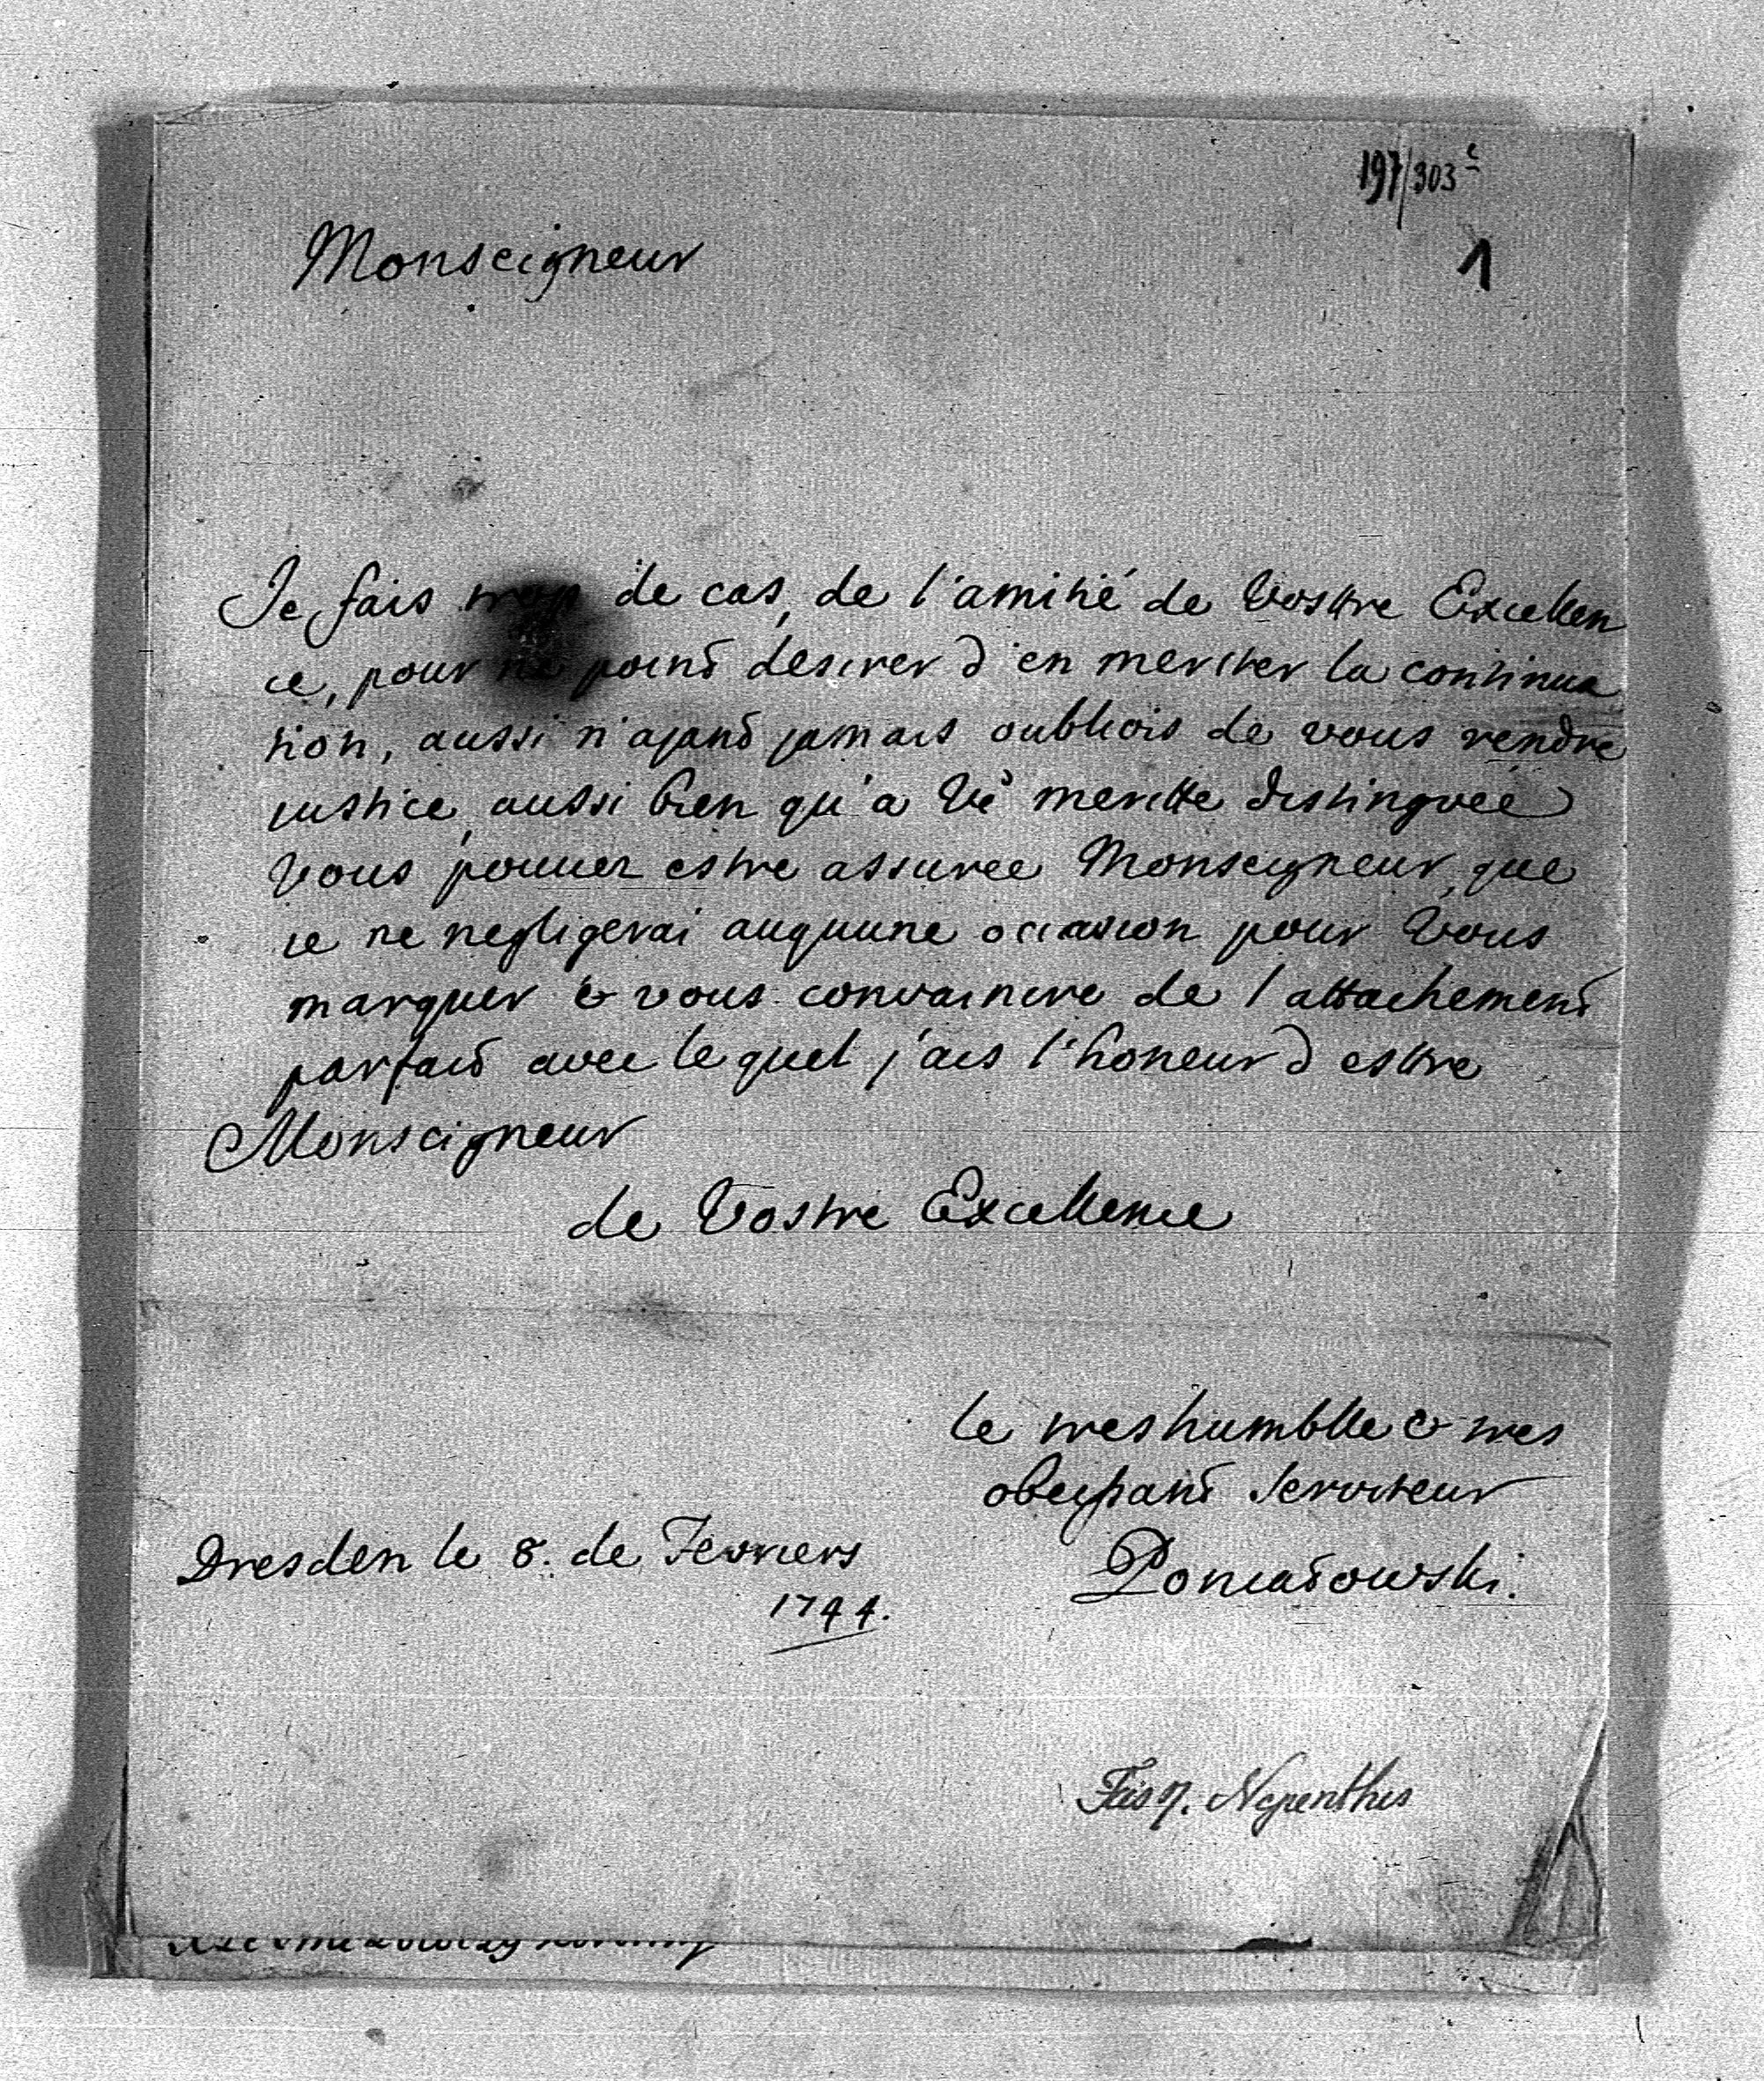 197/303 c
1
Monseigneur
Je fais trop de cas, de l'amitié de Vosttre Excellen
ce, pour ne point desirer d'en meriter la continua
tion, aussi n'ajant jamais oubliois de vous rendre
justice, aussi bien qu'a Vè meritte distinguée
Vous pouuez estre assuree Monseigneur, que
ie ne negligerai auquune occasion pour Vous
marquer & vous convaincre de l'attachement
parfait avec le quel j'ais l'honeur d'esttre
Monseigneur
de Vostre Excellence
le tres humblle & tres
obeissant serviteur
Dresden le 8. de Fevriers
Poniatowski.
1744.
Nepenthes